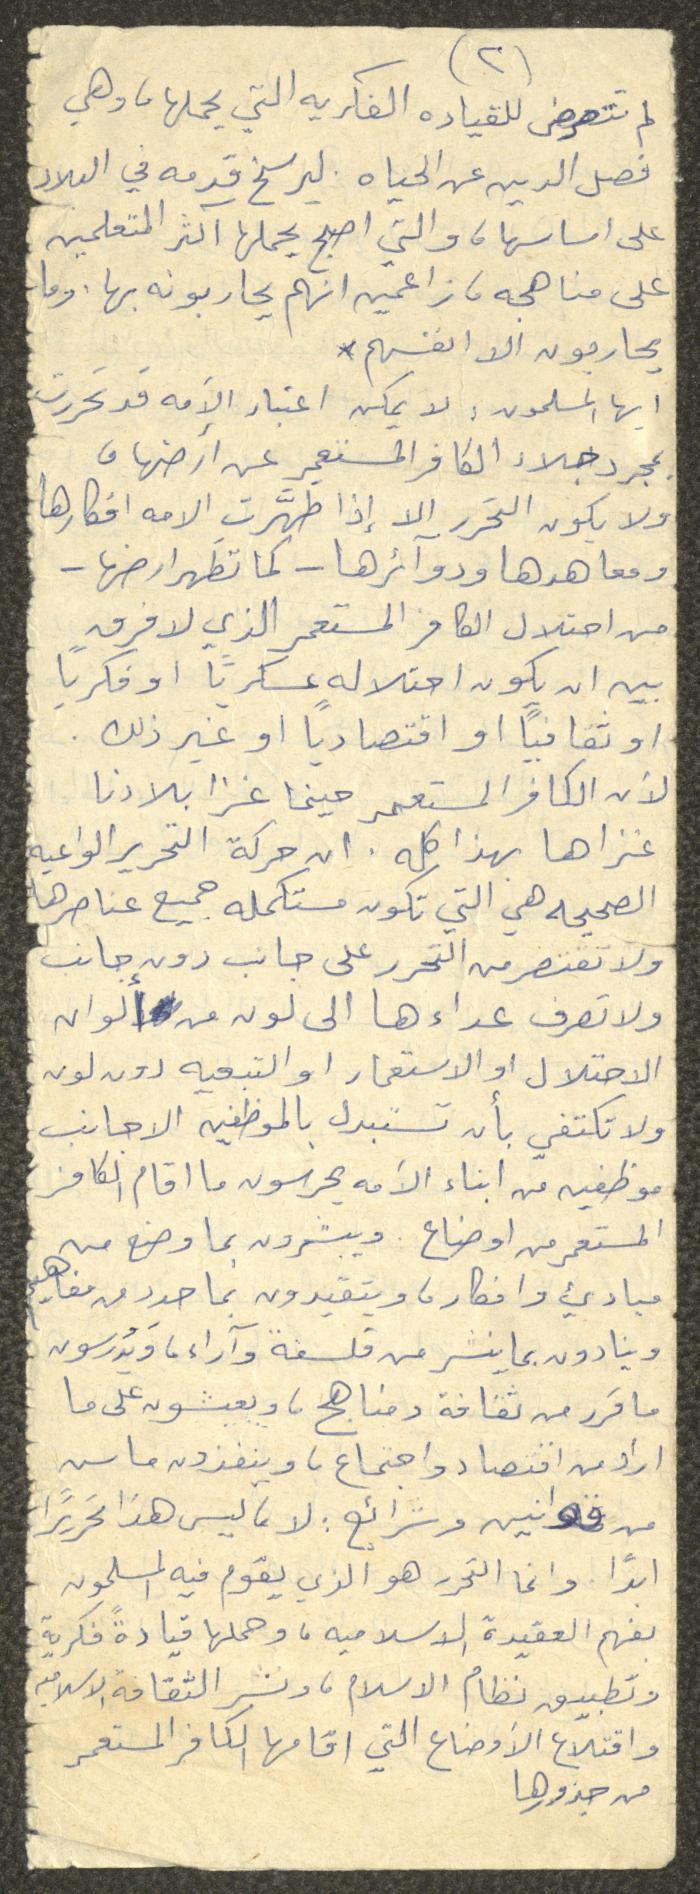 (٢)
لم تتعرض للقياده الفكريه التي يحملها، وهي
فصل الدين عن الحياه. ليرسخ قدمه في البلاد
على اساسها، والتي اصبح يحملها اكثر المتعلمين
على مناهجه، زاعمين انهم يحاربونه بها. وما
يحاربون الا انفسهم *
ايها المسلمون: لا يمكن اعتبار الأمه قد تحررت
بمجرد جلاء الكافر المستعمر عن أرضها،
ولا يكون التحرر إلا إذا طهَّرت الامه افكارها
ومعاهدها ودوآئرها - كما تطهر ارضها -
من احتلال الكافر المستعمر الذي لا فرق
بين ان يكون احتلاله عسكريًا او فكريًا
او ثقافيًا او اقتصاديًا او غير ذلك.
لأن الكافر المستعمر حينما غزا بلادنا
غزاها بهذا كله. ان حركة التحرير الواعيه
الصحيحه هي التي تكون مستكمله جميع عناصرها
ولا تقتصر من التحرر على جانب دون جانب
ولا تصرف عداءها الى لون من ألوان
الاحتلال او الاستعمار او التبعيه دون لون
ولا تكتفي بأن تستبدل بالموظفين الاجانب
موظفين من ابناء الأمه يحرسون ما اقام الكافر
المستعمر من اوضاع. ويبشرون بما وضع من
مبادئ وافكار، ويتقيدون بما حدد من مفاهيم
وينادون بما ينشر من فلسفة وآراء، ويُدرسون
ما قرر من ثقافة ومناهج، ويعيشون على ما
اراد من اقتصاد واجتماع، وينفذون ما سن
من قوانين وشرائع: لا، ليس هذا تحريرًا
ابدًا. وانما التحرر هو الذي يقوم فيه المسلمون
بفهم العقيدة الاسلاميه، وحملها قيادةً فكريةً
وتطبيق نظام الاسلام، ونشر الثقافة الاسلاميه
واقتلاع الأوضاع التي اقامها الكافر المستعمر
من جذورها